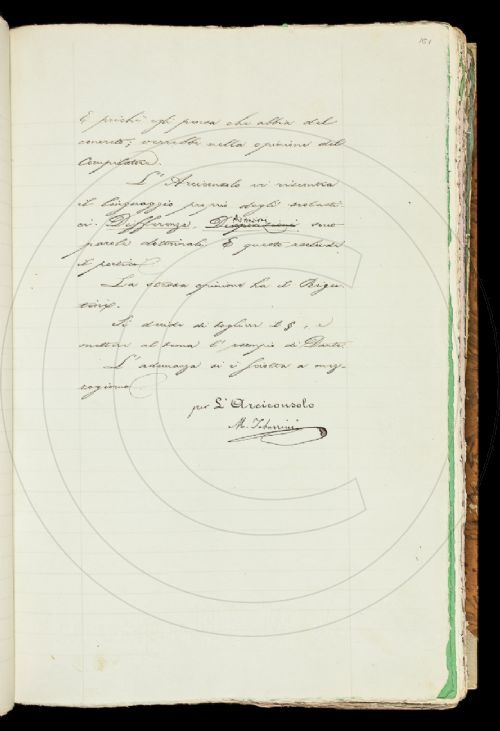 151
E poichè egli pensa che abbia del
concreto, verrebbe nella opinione del
Compilatore.
L'Arciconsolo vi riscontra
il linguaggio proprio degli scolasti-
ci. Differenza, sono
parole dottrinali. E questo esclude
il poetico.
La stessa opinione ha il Rigu-
tini.
Si decide di togliere il §, e
mettere al tema l'esempio di Dante.
L'adunanza si è sciolta a mez-
zogiorno.
per L'Arciconsolo
M. Tabarrini